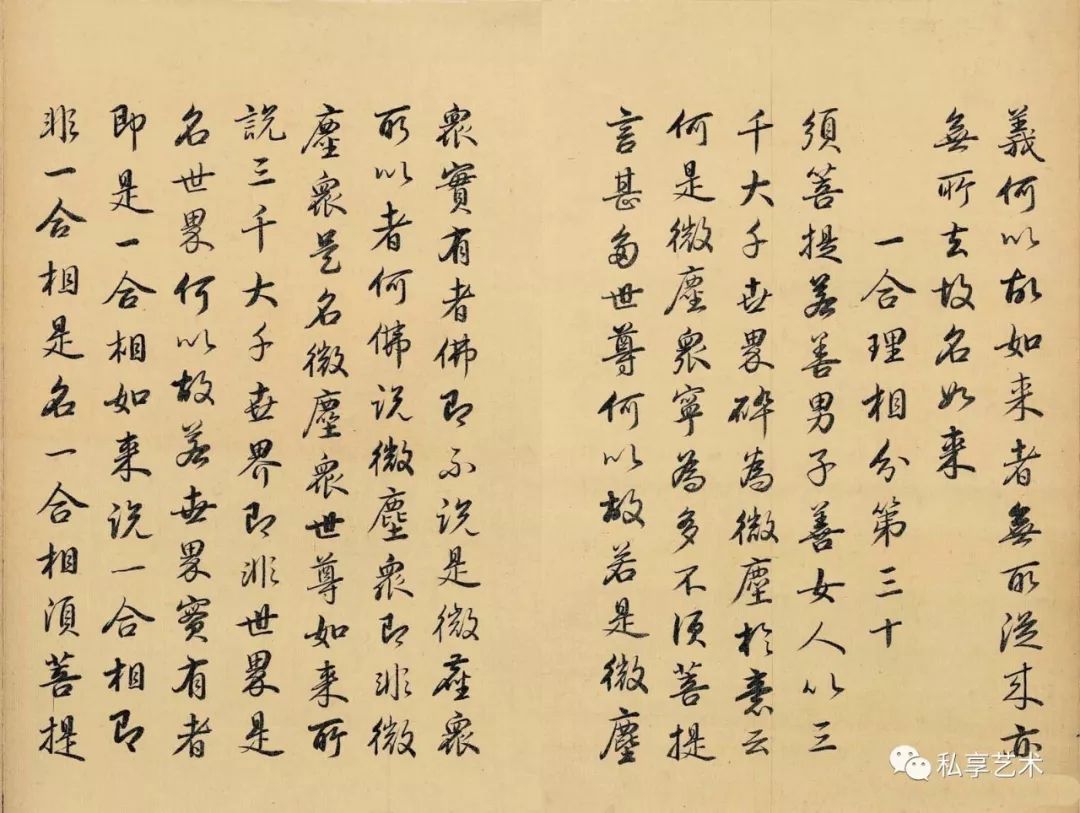 義何以故如来者無所從来亦
無所去故名如来
一合理相分第三十
須菩提若善男子善女人以三
千大千世界碎為微塵於意云
何是微塵衆寧為多不須菩提
言甚多世尊何以故若是微塵
衆實有者佛即不說是微塵衆
所以者何佛說微塵衆即非微
塵衆是名微塵衆世尊如来所
說三千大千世界即非世界是
名世界何以故若世界實有者
即是一合相如来說一合相即
非一合相是名一合相須菩提
私享艺术